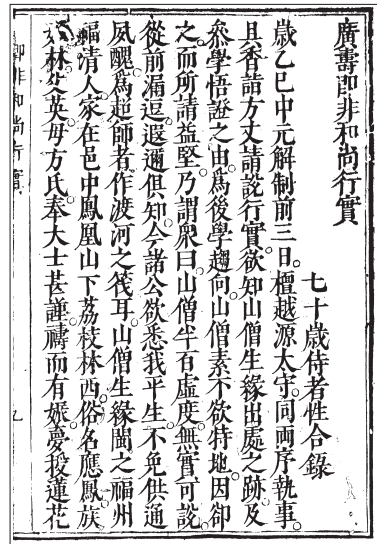 廣壽即非和尚行實
七十歲侍者性合錄
歲乙巳中元解制前三日。檀越源太守。同兩序執事。
具香詣方丈請說行實。欲知山僧生緣出處之跡。及
叅學悟證之由。為後學趨向。山僧素不欲特地。因卻
之。而所請益堅。乃謂眾曰。山僧半百虛度。無實可說。
從前漏逗。遐邇俱知。今諸公欲悉我平生。不免供通
夙醜。為起師者。作渡河之筏耳。山僧生緣閩之福州
福清人。家在邑中鳳凰山下荔枝林西。俗名應鳳。族
林。父英。母方氏。奉大士甚謹。禱而有娠。夢授蓮花
即非和尚行實
九